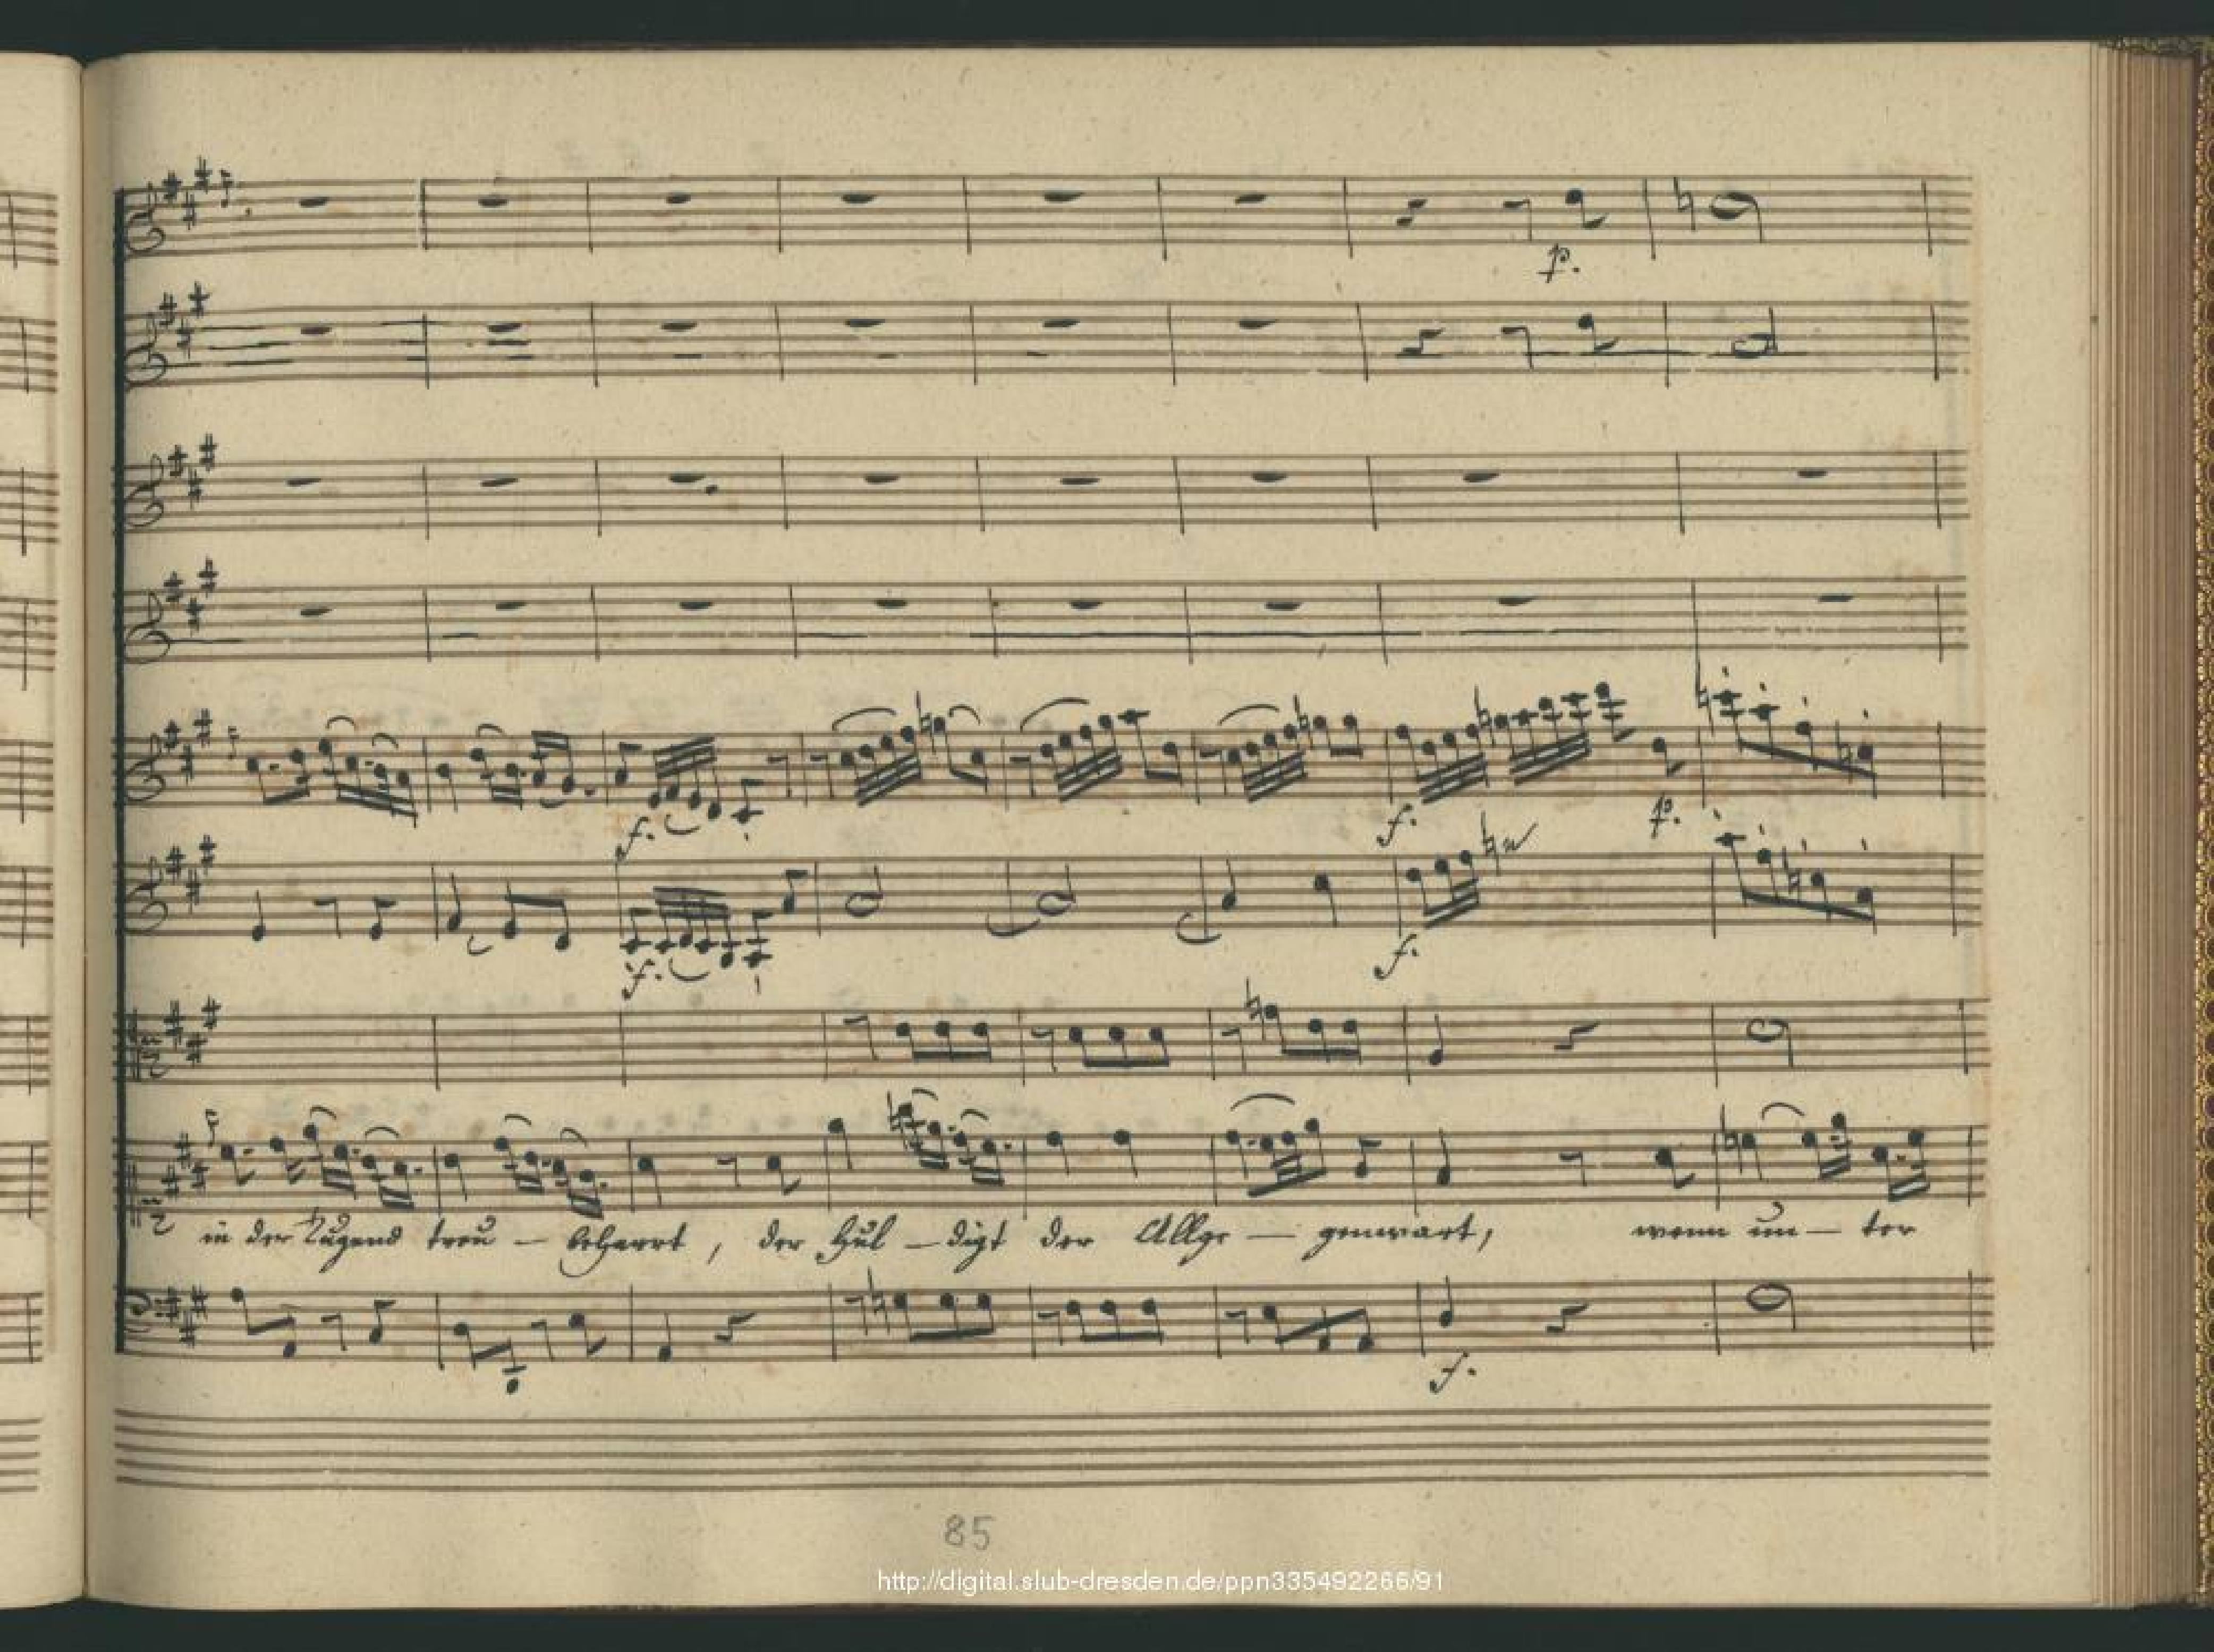 p.
f.
f.
p.
f.
f.
in der Tugend treu - beharrt, der hul - digt der Allge - genwart, wenn un - ter
f.
85
http://digital.slub-dresden.de/ppn335492266/91